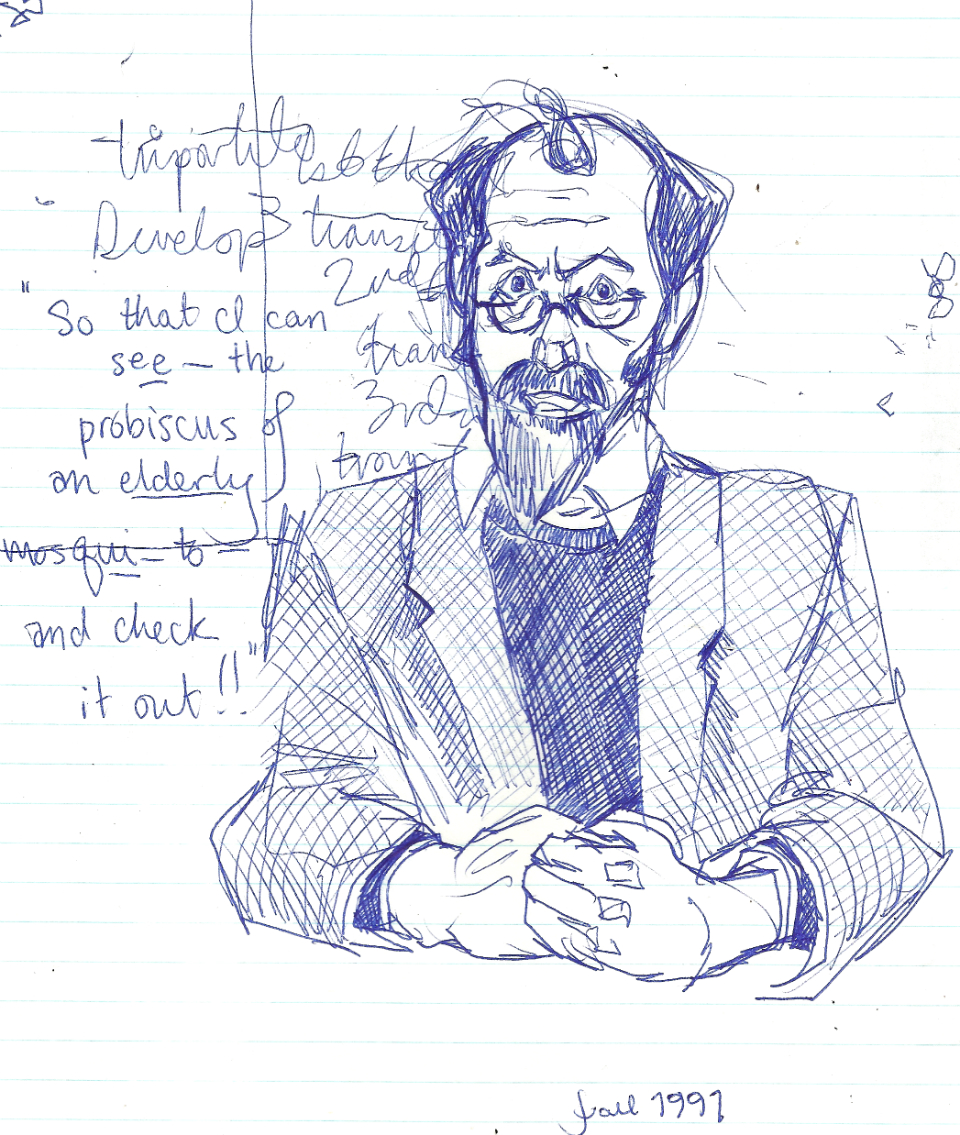 tripartite
Develop 3 transit
2nd
tran
3rd
tran
"So that I can
see – the
probiscus of
an elderly
mosqui-to –
and check
it out!!"
fall 1991